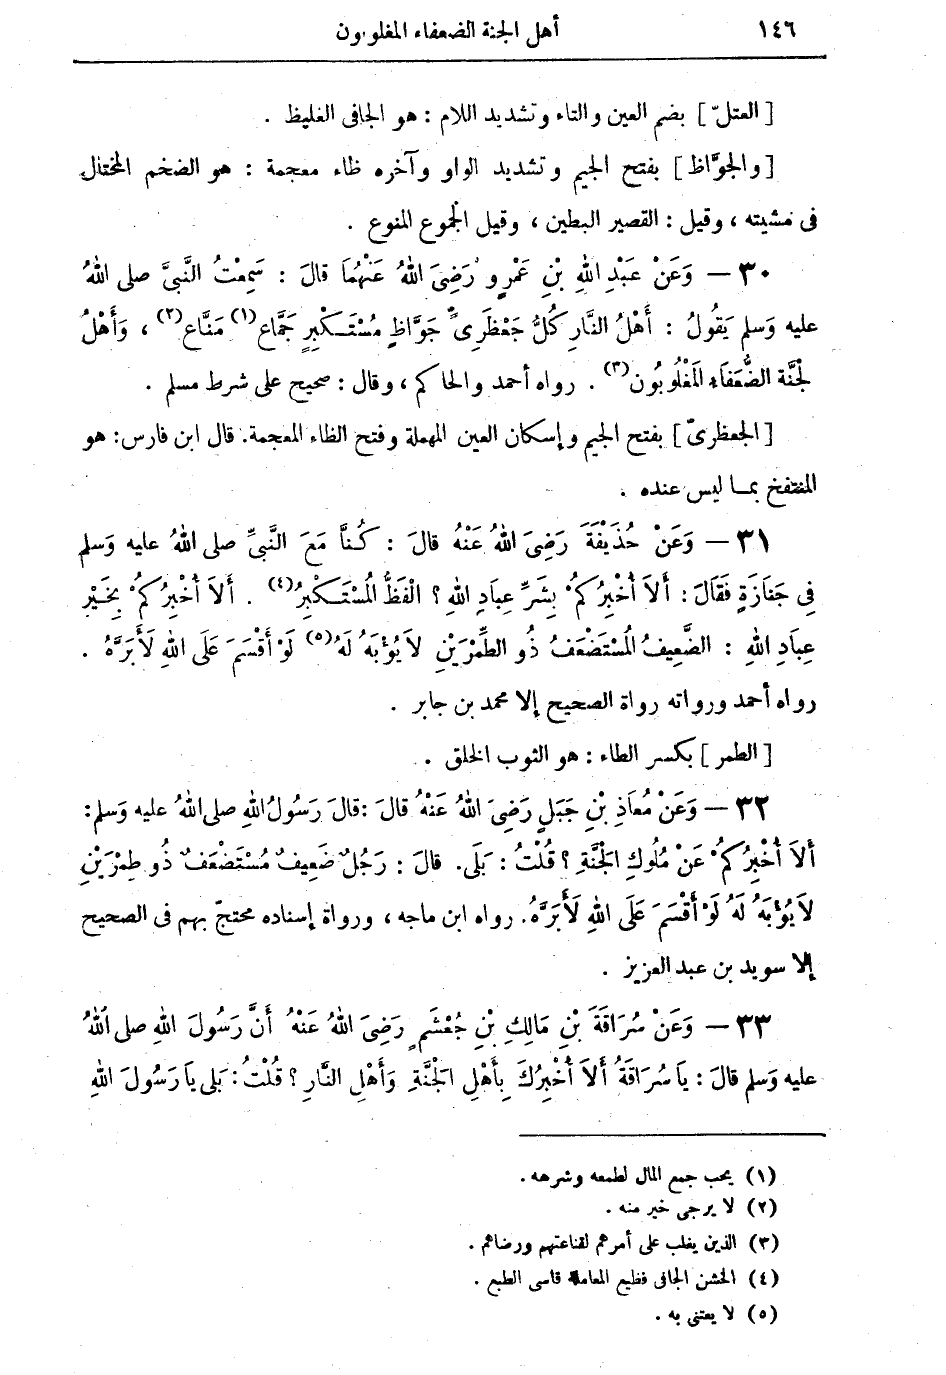 ١٤٦ أهل الجنة الضعفاء المغلوبون
[ العتلّ ] بضم العين والتاء وتشديد اللام : هو الجافى الغليظ .
[ والجوَّاظ ] بفتح الجيم وتشديد الواو وآخره ظاء معجمة : هو الضخم المختال
فى مشيته ، وقيل : القصير البطين ، وقيل الجموع المنوع .
٣٠ — وَعَنْ عَبْدِ اللهِ بْنِ عَمْرٍو رَضِىَ اللهُ عَنْهُمَا قالَ : سَمِعْتُ النَّبِىَّ صلى اللهُ
عليه وَسلم يَقُولُ : أَهْلُ النَّارِ كُلُّ جَعْظَرِىٍّ جَوَّاظٍ مُسْتَكْبِرٍ جَمَّاعٍ (١) مَنَّاعٍ (٢) ، وَأَهْلُ
لجَنَّة الضُّعَفَاءِ المَغْلُوبُون (٣) . رواه أحمد والحاكم ، وقال : صحيح على شرط مسلم .
[ الجعظرىّ ] بفتح الجيم وإسكان العين المهملة وفتح الظاء المعجمة. قال ابن فارس: هو
المنتفخ بما ليس عنده .
٣١ — وَعَنْ حُذَيْفَةَ رَضِىَ اللهُ عَنْهُ قالَ : كُنَّا مَعَ النَّبِىِّ صلى اللهُ عليه وَسلم
فِى جَنَازَةٍ فَقَالَ : أَلاَ أُخْبِرُكُمْ بِشَرِّ عِبَادِ اللهِ ؟ الْفَظُّ الْمُسْتَكْبِرُ (٤) . أَلاَ أُخْبِرُكُمْ بِخَيْرِ
عِبَادِ اللهِ : الضَّعِيفُ الْمُسْتَضْعَفُ ذُو الطِّمْرَيْنِ لاَ يُؤْبَهُ لَهُ (٥) لَوْ أَقْسَمَ عَلَى اللهِ لَأَبَرَّهُ .
رواه أحمد ورواته رواة الصحيح إلا محمد بن جابر .
[ الطمر ] بكسر الطاء : هو الثوب الخلق .
٣٢ — وَعَنْ مُعَاذِ بْنِ جَبَلٍ رَضِىَ اللهُ عَنْهُ قالَ : قالَ رَسُولُ اللهِ صلى اللهُ عليه وَسلم:
أَلاَ أُخْبِرُكُمْ عَنْ مُلُوكِ الجَنَّةِ ؟ قُلْتُ : بَلَى. قالَ : رَجُلٌ ضَعِيفٌ مُسْتَضْعَفٌ ذُو طِمْرَيْنِ
لاَ يُؤْبَهُ لَهُ لَوْ أَقْسَمَ عَلَى اللهِ لَأَبَرَّهُ. رواه ابن ماجه ، ورواة إسناده محتجّ بهم فى الصحيح
إلا سويد بن عبد العزيز .
٣٣ — وَعَنْ سُرَاقَةَ بْنِ مَالِكِ بْنِ جُعْشَمٍ رَضِىَ اللهُ عَنْهُ أَنَّ رَسُولَ اللهِ صلى اللهُ
عليه وَسلم قالَ : يَا سُرَاقَةُ أَلاَ أُخْبِرُكَ بِأَهْلِ الجَنَّةِ وَأَهْلِ النَّارِ ؟ قُلْتُ : بَلى يَا رَسُولَ اللهِ
(١) يحب جمع المال لطمعه وشرهه .
(٢) لا يرجى خير منه .
(٣) الذين يغلب على أمرهم لقناعتهم ورضاهم .
(٤) الخشن الجافى فظيع المعاملة قاسى الطبع .
(٥) لا يعتنى به .